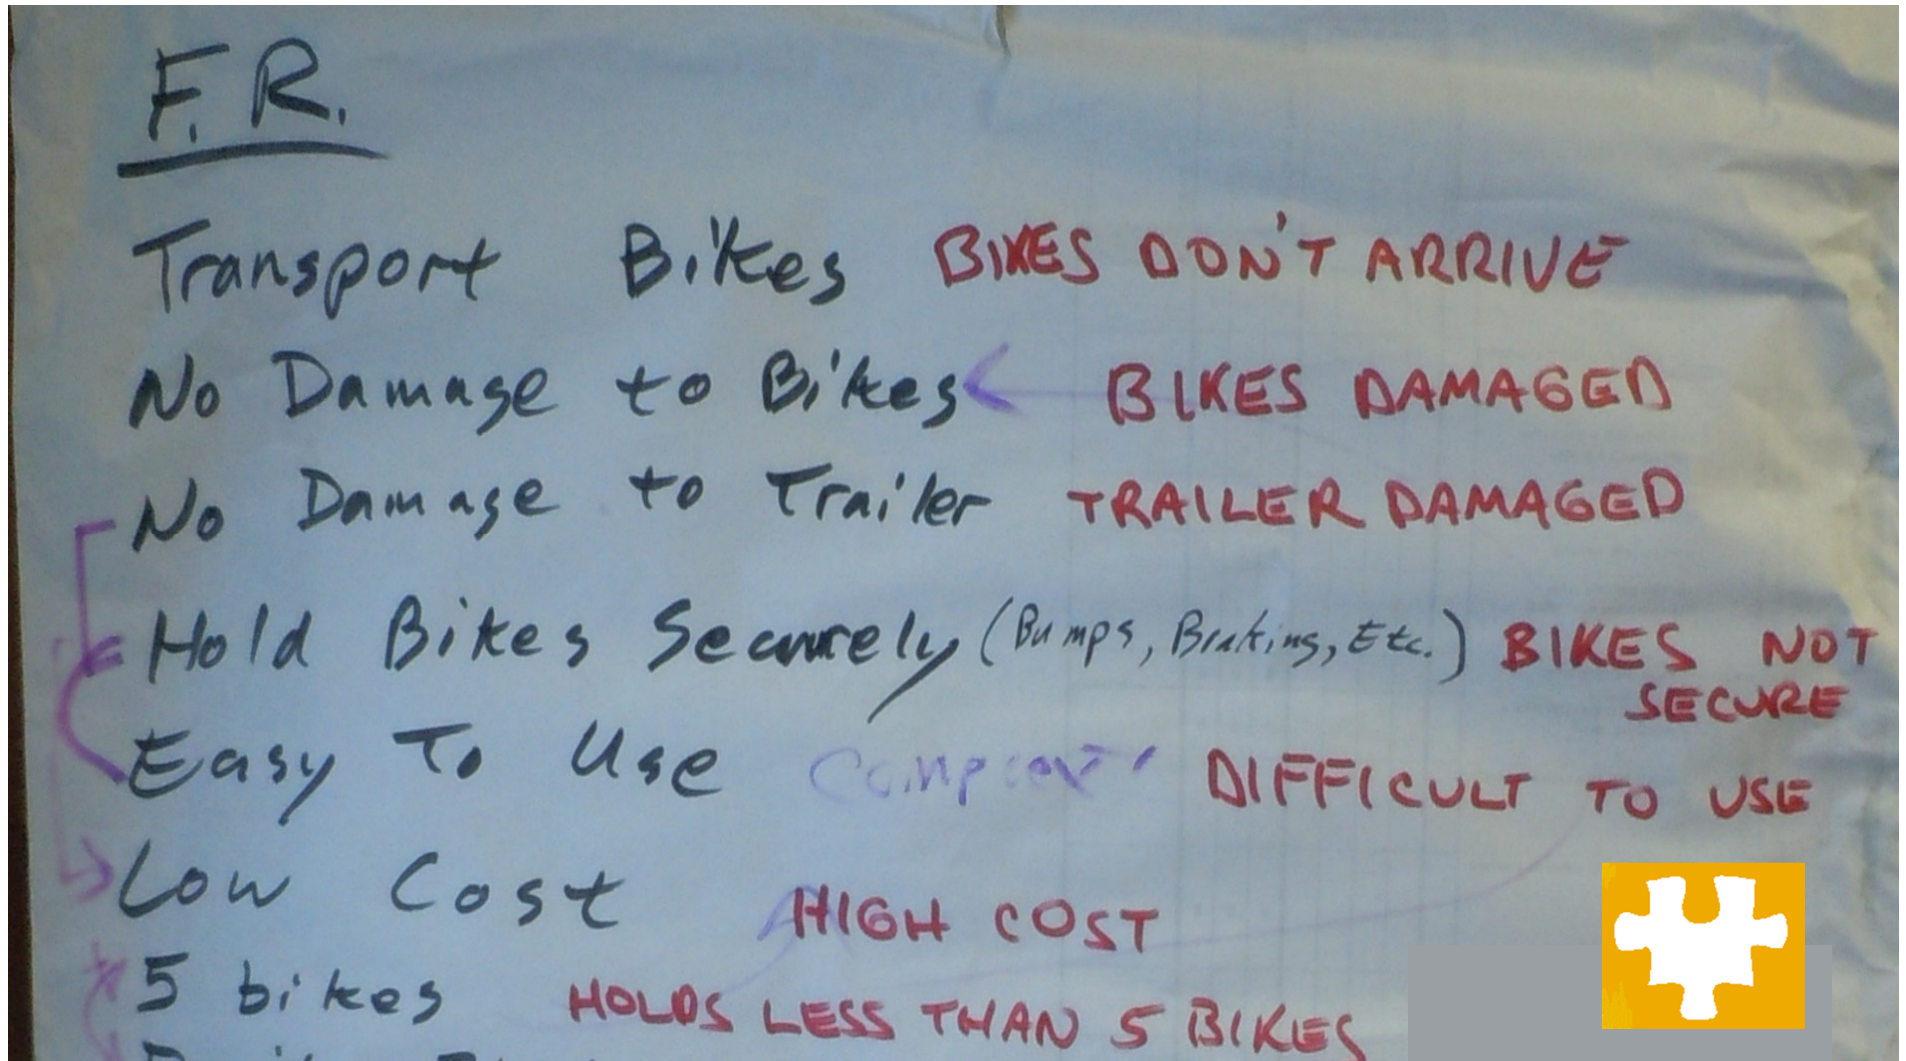 F.R.
Transport Bikes BIKES DON'T ARRIVE
No Damage to Bikes BIKES DAMAGED
No Damage to Trailer TRAILER DAMAGED
Hold Bikes Securely (Bumps, Braking, Etc.) BIKES NOT
SECURE
Easy To Use DIFFICULT TO USE
Low Cost HIGH COST
5 bikes HOLDS LESS THAN 5 BIKES